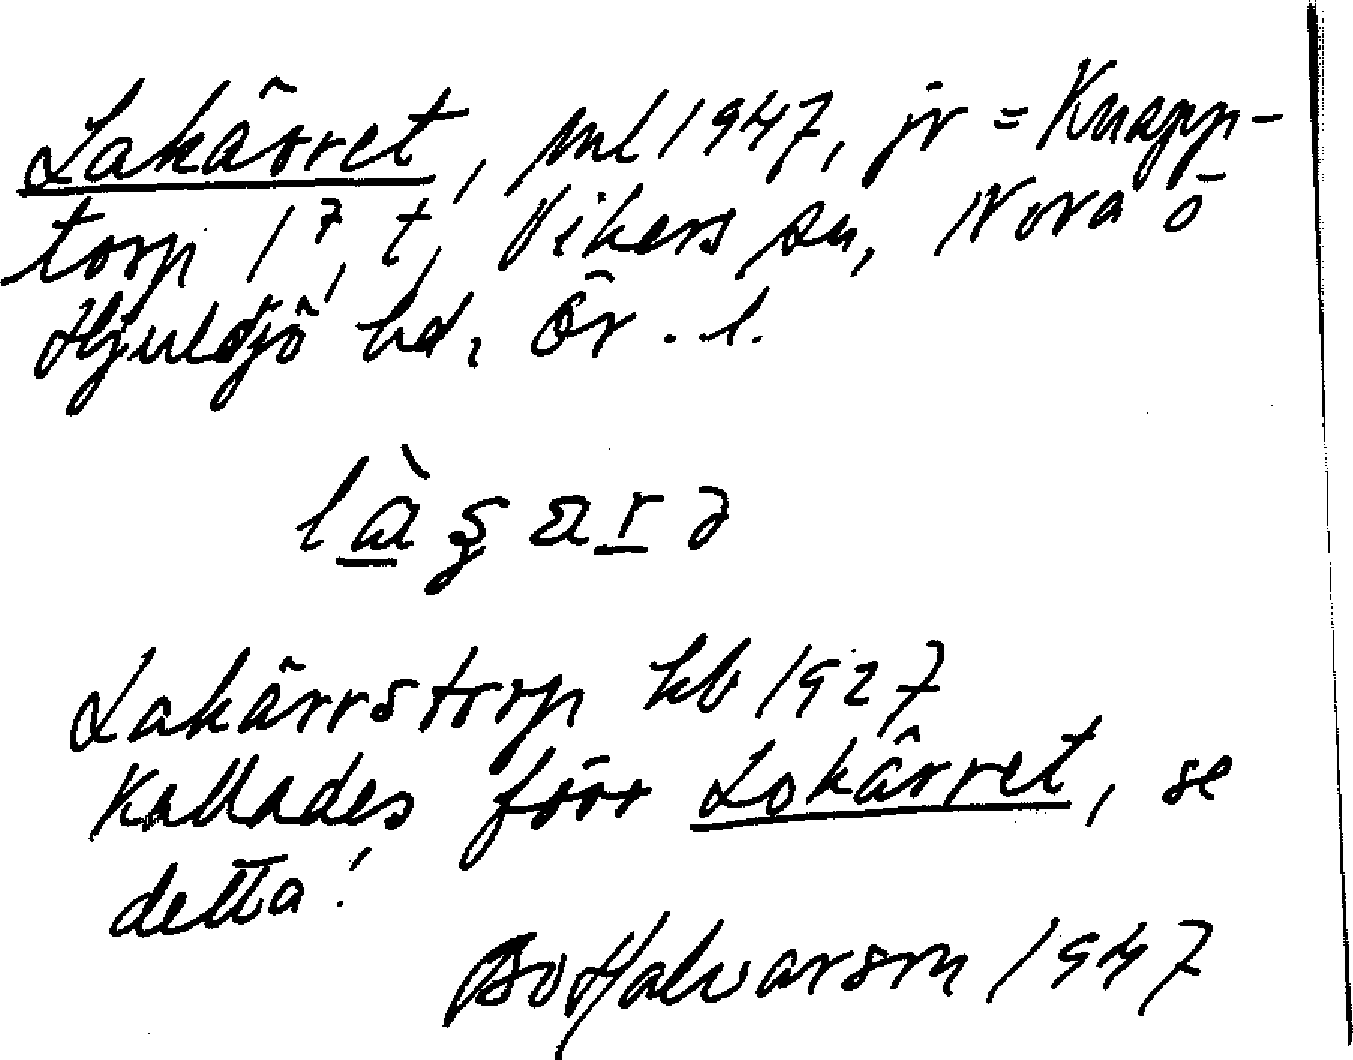 Lakärret, ml 1947, jr = Knapp-
torp 1⁷, t, Vikers sn, Nora o
Hjulsjö hd, Ör. l.
Lakärrstorp kb 1927
Kallades förr Lokärret, se
detta!
Bo Halvarson 1947